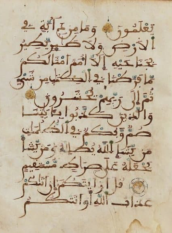 يعلمون وما من دابة في
الارض ولا طير يطير
بجناحيه الا امم امثالكم
ما فرطنا في الكتب من شي
ثم الى ربهم يحشرون
والذين كذبوا بايتنا
صم وبكم في الظلمت
من يشا الله يضلله ومن يشا
يجعله على صرط مستقيم
قل اريتكم ان اتيكم
عذاب الله او اتتكم